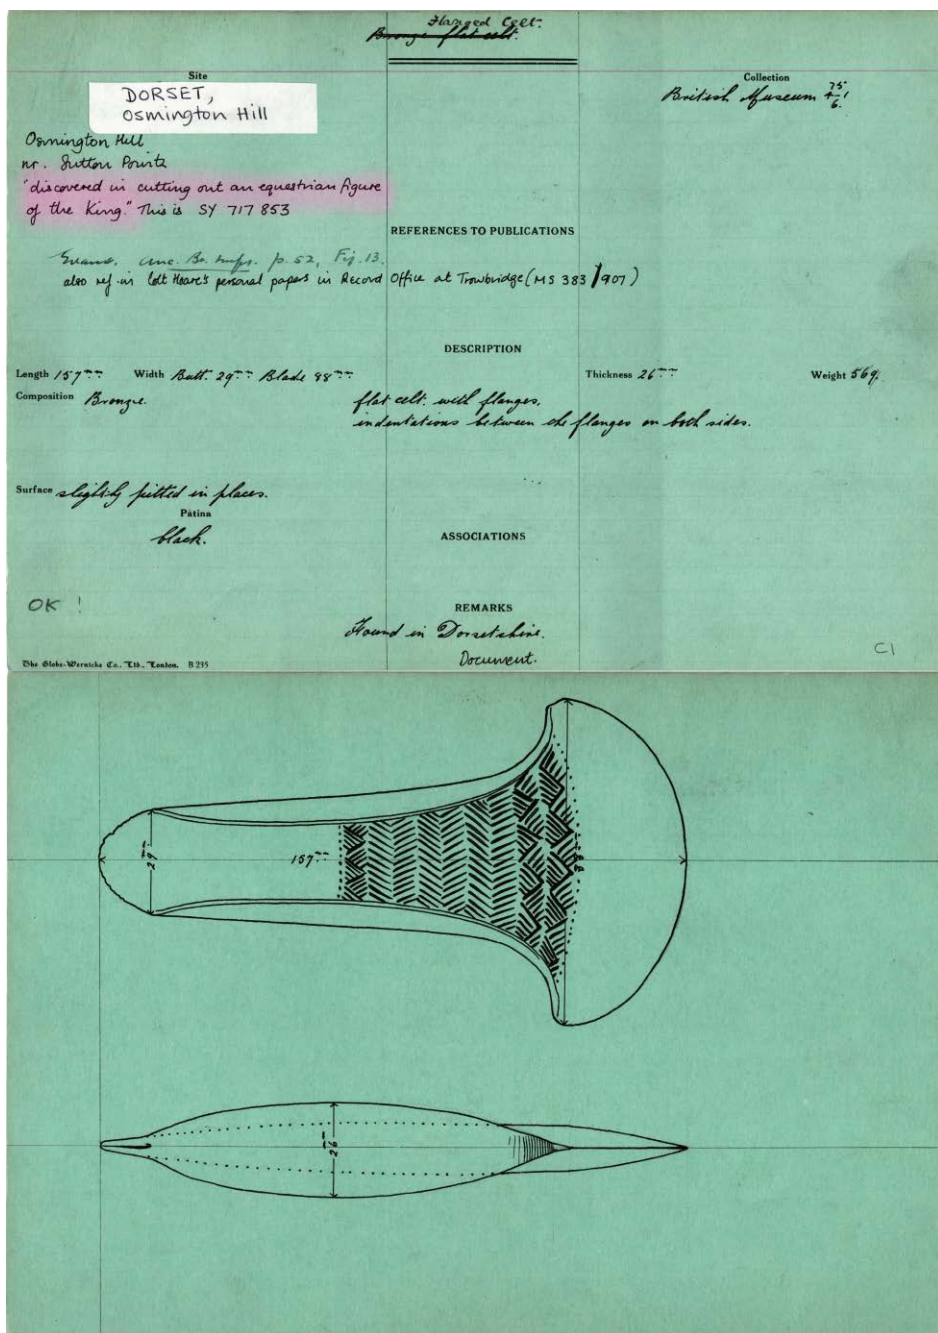 Flanged Celt.
Bronze flat celt.
Site
DORSET,
Osmington Hill
Collection
British Museum 75 4-1 6.
Osmington Hill
nr. Sutton Pointz
"discovered in cutting out an equestrian figure
of the King." This is SY 717 853
REFERENCES TO PUBLICATIONS
Evans, Anc. Br. Imps. p. 52, Fig. 13.
also ref. in Colt Hoare's personal papers in Record Office at Trowbridge (MS 383/907)
DESCRIPTION
Length 157mm Width Butt. 29mm Blade 88mm Thickness 26mm Weight 569.
Composition Bronze. flat celt. with flanges.
indentations between the flanges on both sides.
Surface slightly pitted in places.
Patina
black.
ASSOCIATIONS
OK !
REMARKS
Found in Dorsetshire.
Document.
C1
The Globe-Wernicke Co., Ltd., London. B 215
29mm
157mm
88
26mm